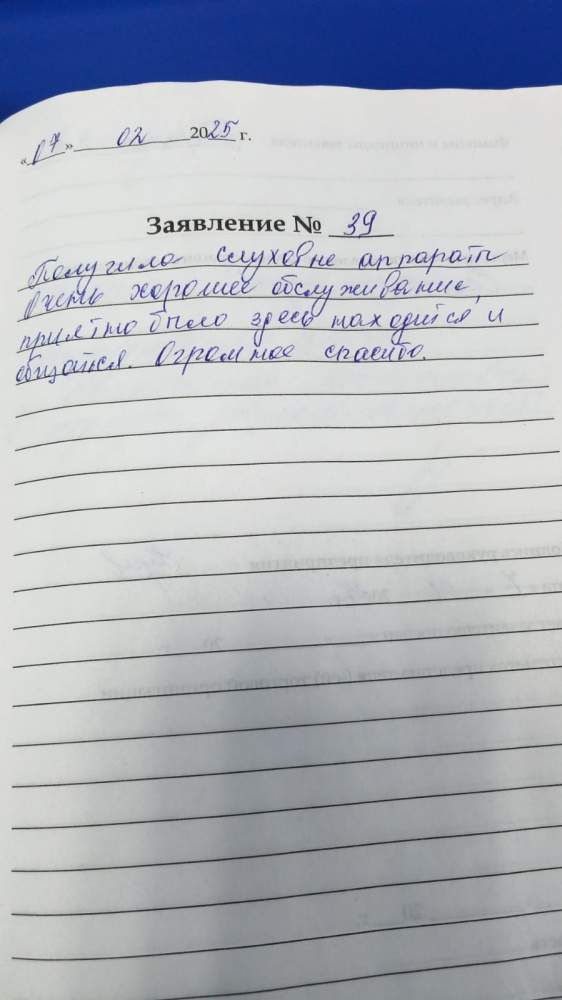 «07» 02 2025 г.
Заявление № 39
Получила слуховие аппараты
Очень хорошее обслуживание,
приятно было здесь находится и
общатся. Огромное спасибо.